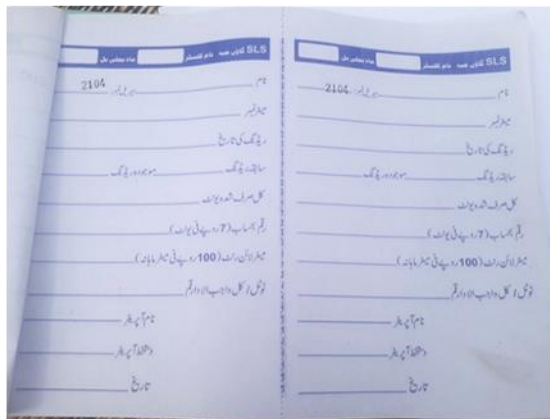 SLS گاؤں حصہ نام کلسٹر ماہ بجلی بل
نام سیریل نمبر 2104
میٹر نمبر
ریڈنگ کی تاریخ
سابقہ ریڈنگ موجودہ ریڈنگ
کل صرف شدہ یونٹ
رقم بحساب (7 روپے فی یونٹ)
میٹر لائن رنٹ (100 روپے فی میٹر ماہانہ)
ٹوٹل / کل واجب الادا رقم
نام آپریٹر
دستخط آپریٹر
تاریخ
SLS گاؤں حصہ نام کلسٹر ماہ بجلی بل
نام سیریل نمبر 2104
میٹر نمبر
ریڈنگ کی تاریخ
سابقہ ریڈنگ موجودہ ریڈنگ
کل صرف شدہ یونٹ
رقم بحساب (7 روپے فی یونٹ)
میٹر لائن رنٹ (100 روپے فی میٹر ماہانہ)
ٹوٹل / کل واجب الادا رقم
نام آپریٹر
دستخط آپریٹر
تاریخ